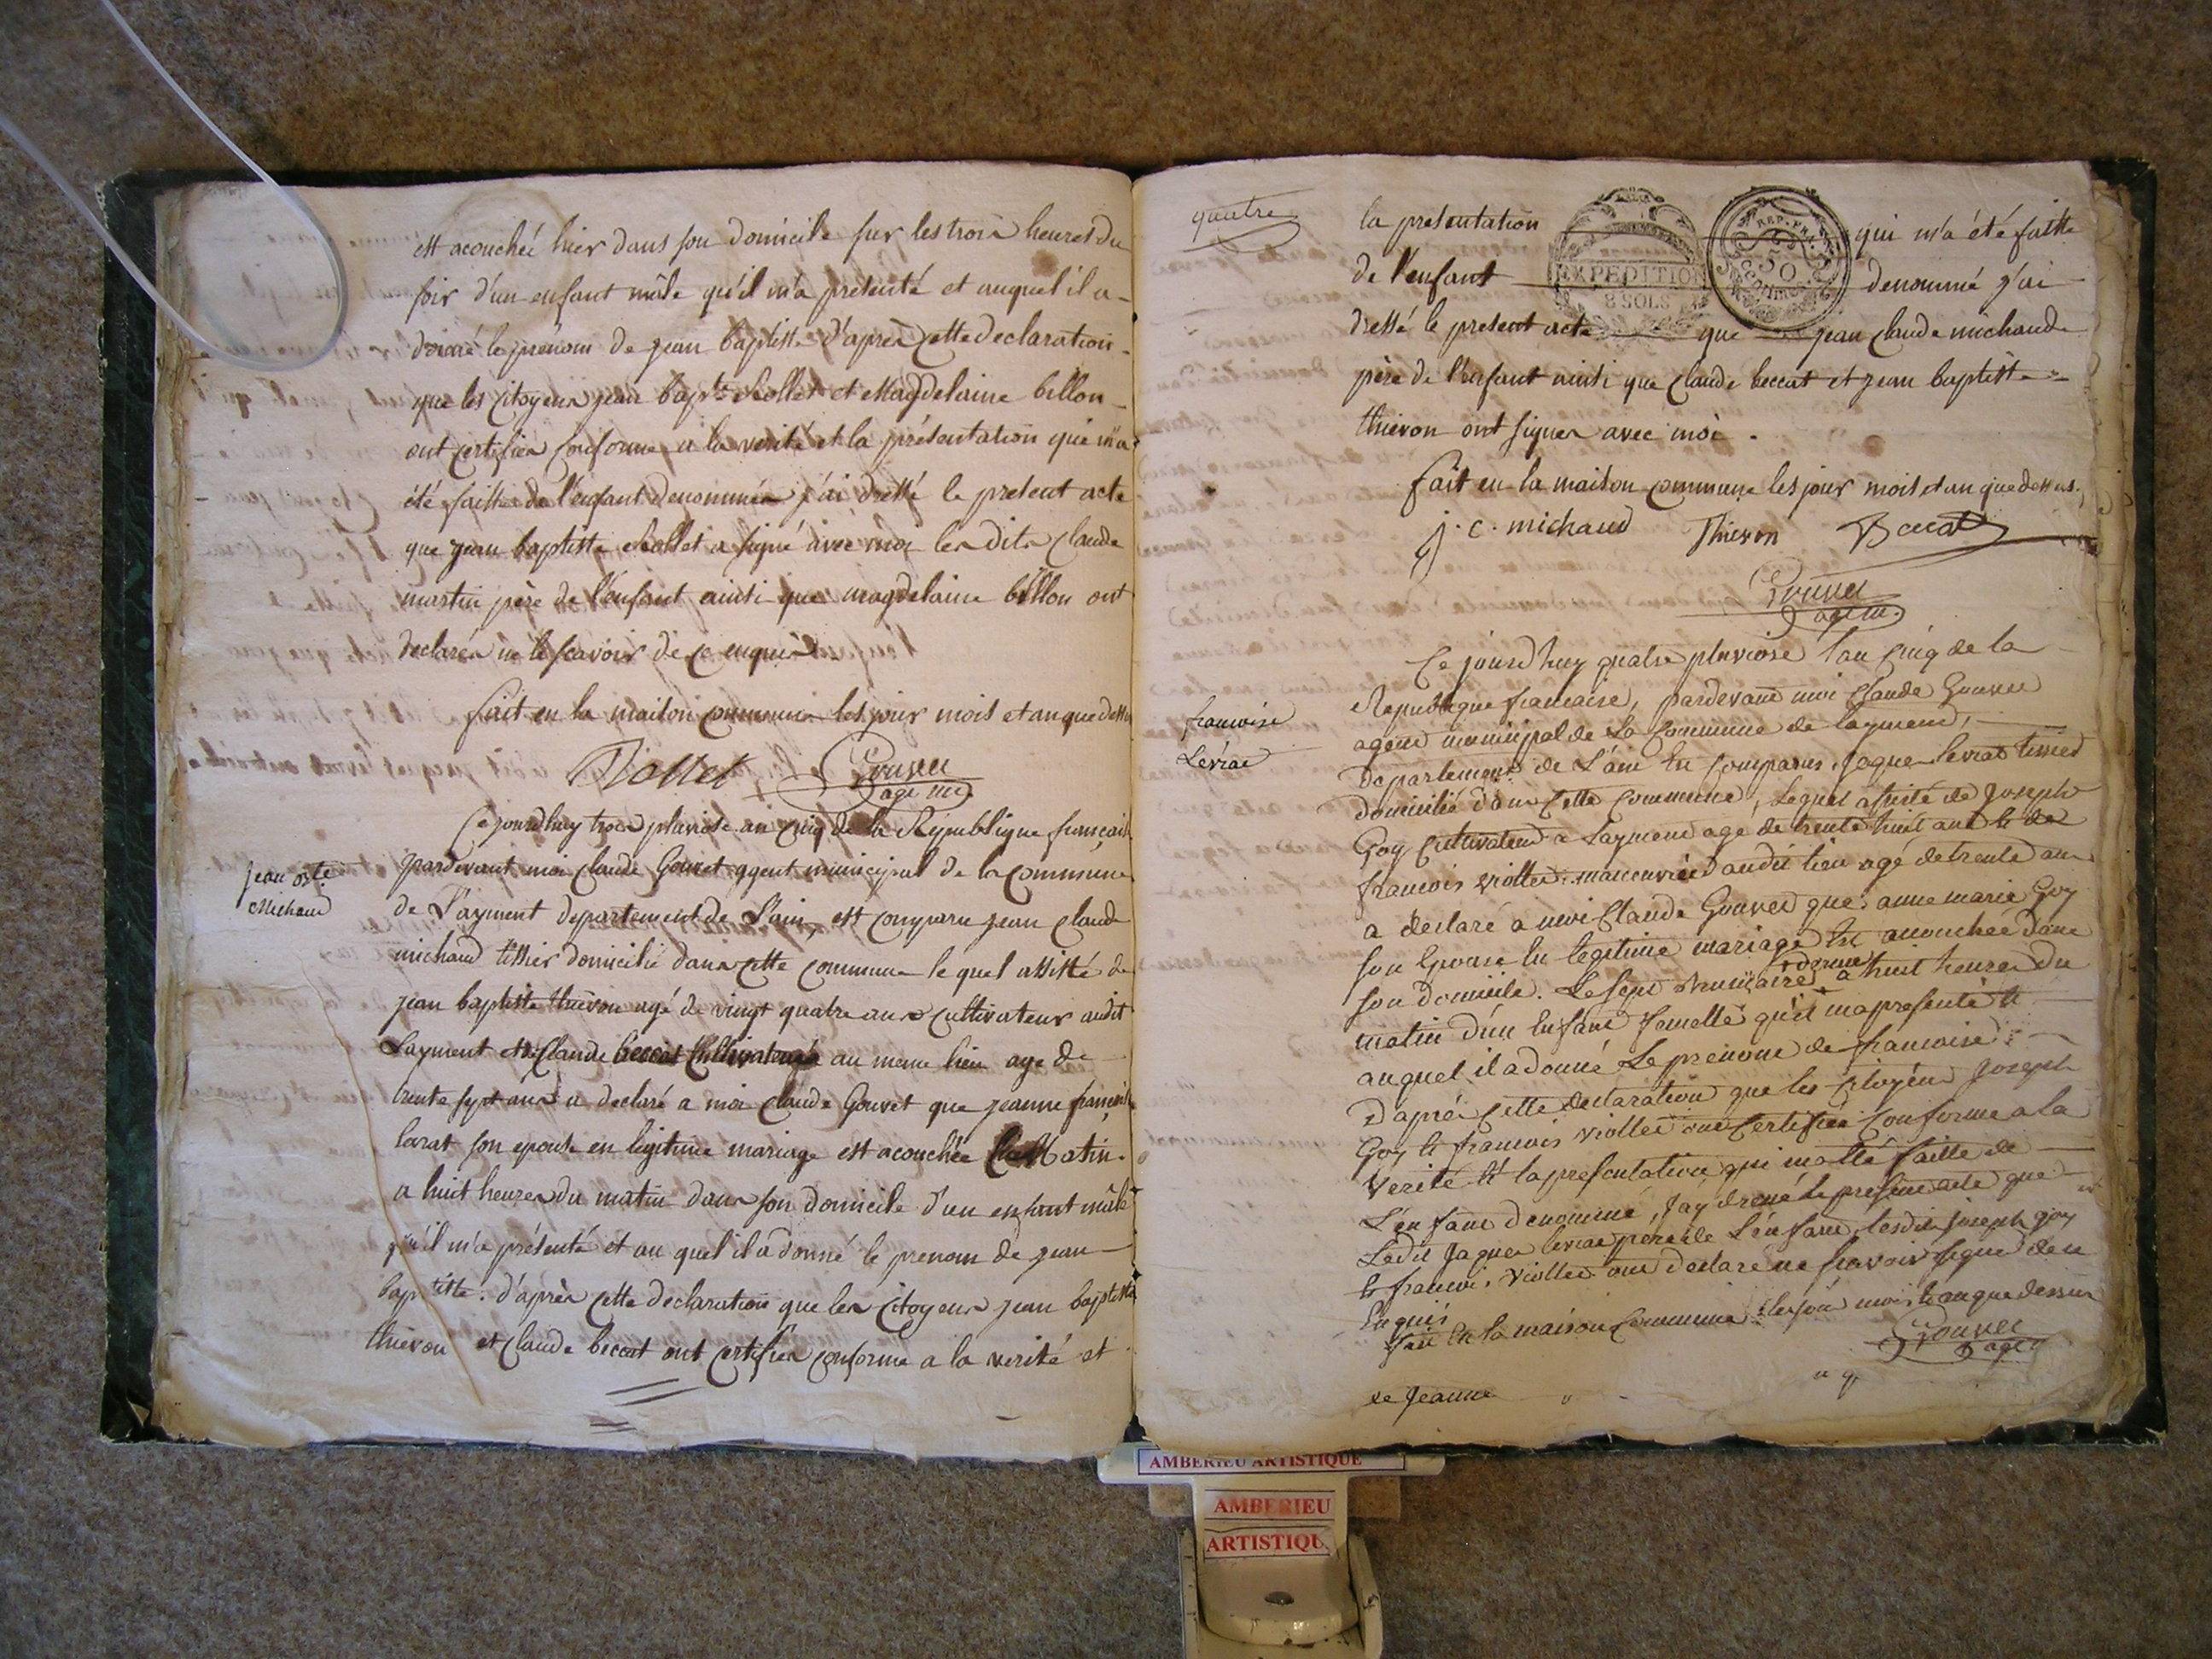 est acouchée hier dans son domicile sur les trois heures du
soir d'un enfant mâle qu'il m'a présenté et auquel il a
donné le prénom de jean baptiste d'après cette declaration
que les citoyens jean bapte Rollet et Magdelaine billon
ont certifier conforme a la verité et la présentation qui m'a
été faitte de l'enfant denommée j'ai dressé le present acte
que jean baptiste Rollet a signé avec moi les dits Claude
martin père de l'enfant ainsi que magdelaine billon ont
declarés ne le scavoir de ce enquis
fait en la maison commune les jour mois et an que dessus
Rollet Gouvet
age mu
Ce jourdhuy trois pluviose an cinq de la République francaise
pardevant moi Claude Gouvet agent municipal de la commune
jean bte
Michaud
de Layment departement de l'ain, est comparu jean Claude
michaud tissier domicilié dans cette commune lequel assisté de
jean baptiste thievon agé de vingt quatre ans cultivateur audit
Layment et Claude beccat Cultivateur au meme lieu age de
trente sept ans a declaré a moi Claude Gouvet que jeanne françoise
larat son epouse en legitime mariage est acouchée Matin
a huit heures du matin dans son domicile d'un enfant mâle
qu'il m'a présenté et au quel il a donné le prenom de jean
baptiste. d'après cette declaration que les citoyens jean baptiste
thievon et Claude beccat ont certifier conforme a la verité et
quatre
la presentation qui m'a été faitte
de l'enfant denommé j'ai
EXPEDITION
8 SOLS
REP. FRA.
50
dressé le present acte que jean Claude michaud
père de l'enfant ainsi que Claude beccat et jean baptiste
thievon ont signer avec moi.
fait en la maison commune les jour mois et an que dessus.
j. c. michaud Thievon Becat
Gouvet
age m.
Ce jourdhuy quatre pluviose l'an cinq de la
Republique francaise, pardevant moi Claude Gouvet
francoise
Levrat
agent municipal de la Commune de layment,
departement de L'ain Est Comparus Jaques levrat tissier
domicilié dans Cette Commune, Lequel assisté de Joseph
Goy Cultivateur a Layment agé de trente huit ans et de
francois viollet manouvrier audit lieu agé de trente ans
a declaré a moi Claude Gouvet que anne marie Goy
son Epouse En legitime mariage Est acouchée dans
son domicile. Le sept a huit heures du
matin d'un Enfant femelle qu'il ma presenté et
auquel il a donné Le prenom de francoise
D'après Cette declaration que les Citoyens Joseph
Goy et francois viollet ont Certifiée Conforme a la
Verité Et la presentation qui ma été faitte de
L'enfant denommé, Jay dressé Le present acte que
Ledit Jaques levrat père de L'enfant, lesdits joseph goy
et francois viollet ont declaré ne scavoir signé de ce
Enquis
fait En la maison Commune les jour mois et an que dessus
Gouvet
age
de Jeanne
AMBERIEU ARTISTIQUE
AMBERIEU
ARTISTIQU